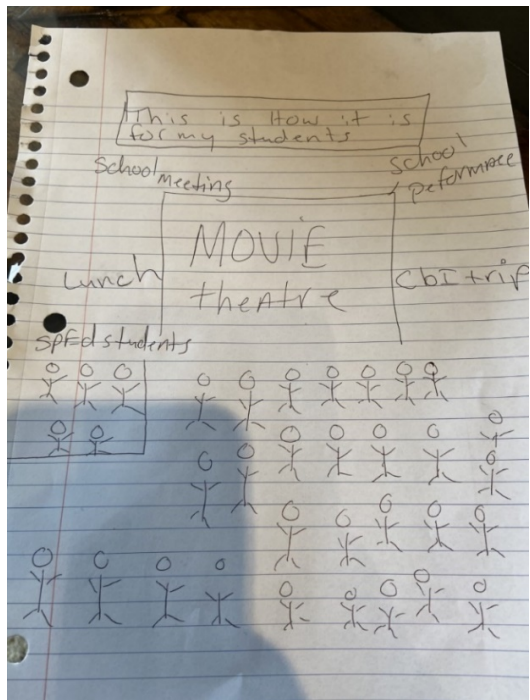 This is How it is
for my students
School meeting
school
peformace
MOVIE
theatre
Lunch
CbI trip
SpEd students